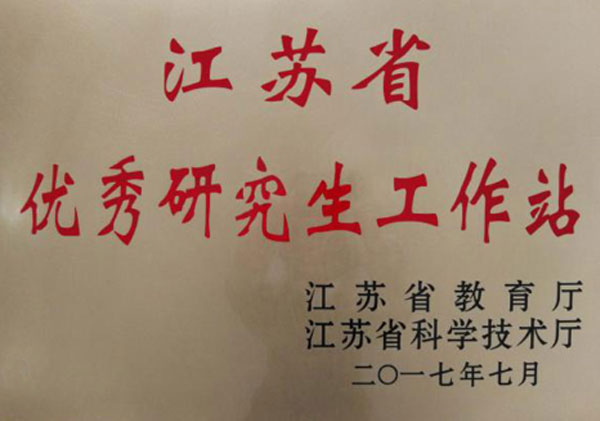 江苏省
优秀研究生工作站
江苏省教育厅
江苏省科学技术厅
二〇一七年七月